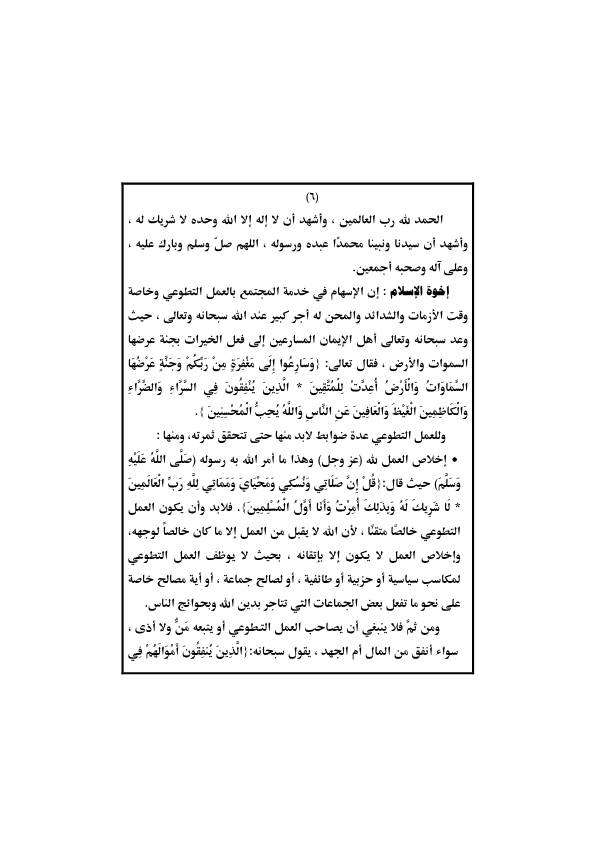 (٦)
الحمد لله رب العالمين ، وأشهد أن لا إله إلا الله وحده لا شريك له ،
وأشهد أن سيدنا ونبينا محمدًا عبده ورسوله ، اللهم صلّ وسلم وبارك عليه ،
وعلى آله وصحبه أجمعين.
إخوة الإسلام : إن الإسهام في خدمة المجتمع بالعمل التطوعي وخاصة
وقت الأزمات والشدائد والمحن له أجر كبير عند الله سبحانه وتعالى ، حيث
وعد سبحانه وتعالى أهل الإيمان المسارعين إلى فعل الخيرات بجنة عرضها
السموات والأرض ، فقال تعالى: {وَسَارِعُوا إِلَى مَغْفِرَةٍ مِنْ رَبِّكُمْ وَجَنَّةٍ عَرْضُهَا
السَّمَاوَاتُ وَالْأَرْضُ أُعِدَّتْ لِلْمُتَّقِينَ * الَّذِينَ يُنْفِقُونَ فِي السَّرَّاءِ وَالضَّرَّاءِ
وَالْكَاظِمِينَ الْغَيْظَ وَالْعَافِينَ عَنِ النَّاسِ وَاللَّهُ يُحِبُّ الْمُحْسِنِينَ }.
وللعمل التطوعي عدة ضوابط لابد منها حتى تتحقق ثمرته، ومنها :
• إخلاص العمل لله (عز وجل) وهذا ما أمر الله به رسوله (صَلَّى اللَّهُ عَلَيْهِ
وَسَلَّمَ) حيث قال:{قُلْ إِنَّ صَلَاتِي وَنُسُكِي وَمَحْيَايَ وَمَمَاتِي لِلَّهِ رَبِّ الْعَالَمِينَ
* لَا شَرِيكَ لَهُ وَبِذَلِكَ أُمِرْتُ وَأَنَا أَوَّلُ الْمُسْلِمِينَ}. فلابد وأن يكون العمل
التطوعي خالصًا متقنًا ، لأن الله لا يقبل من العمل إلا ما كان خالصاً لوجهه،
وإخلاص العمل لا يكون إلا بإتقانه ، بحيث لا يوظف العمل التطوعي
لمكاسب سياسية أو حزبية أو طائفية ، أو لصالح جماعة ، أو أية مصالح خاصة
على نحو ما تفعل بعض الجماعات التي تتاجر بدين الله وبحوائج الناس.
ومن ثمَّ فلا ينبغي أن يصاحب العمل التطوعي أو يتبعه مَنٌّ ولا أذى ،
سواء أنفق من المال أم الجهد ، يقول سبحانه:{الَّذِينَ يُنفِقُونَ أَمْوَالَهُمْ فِي